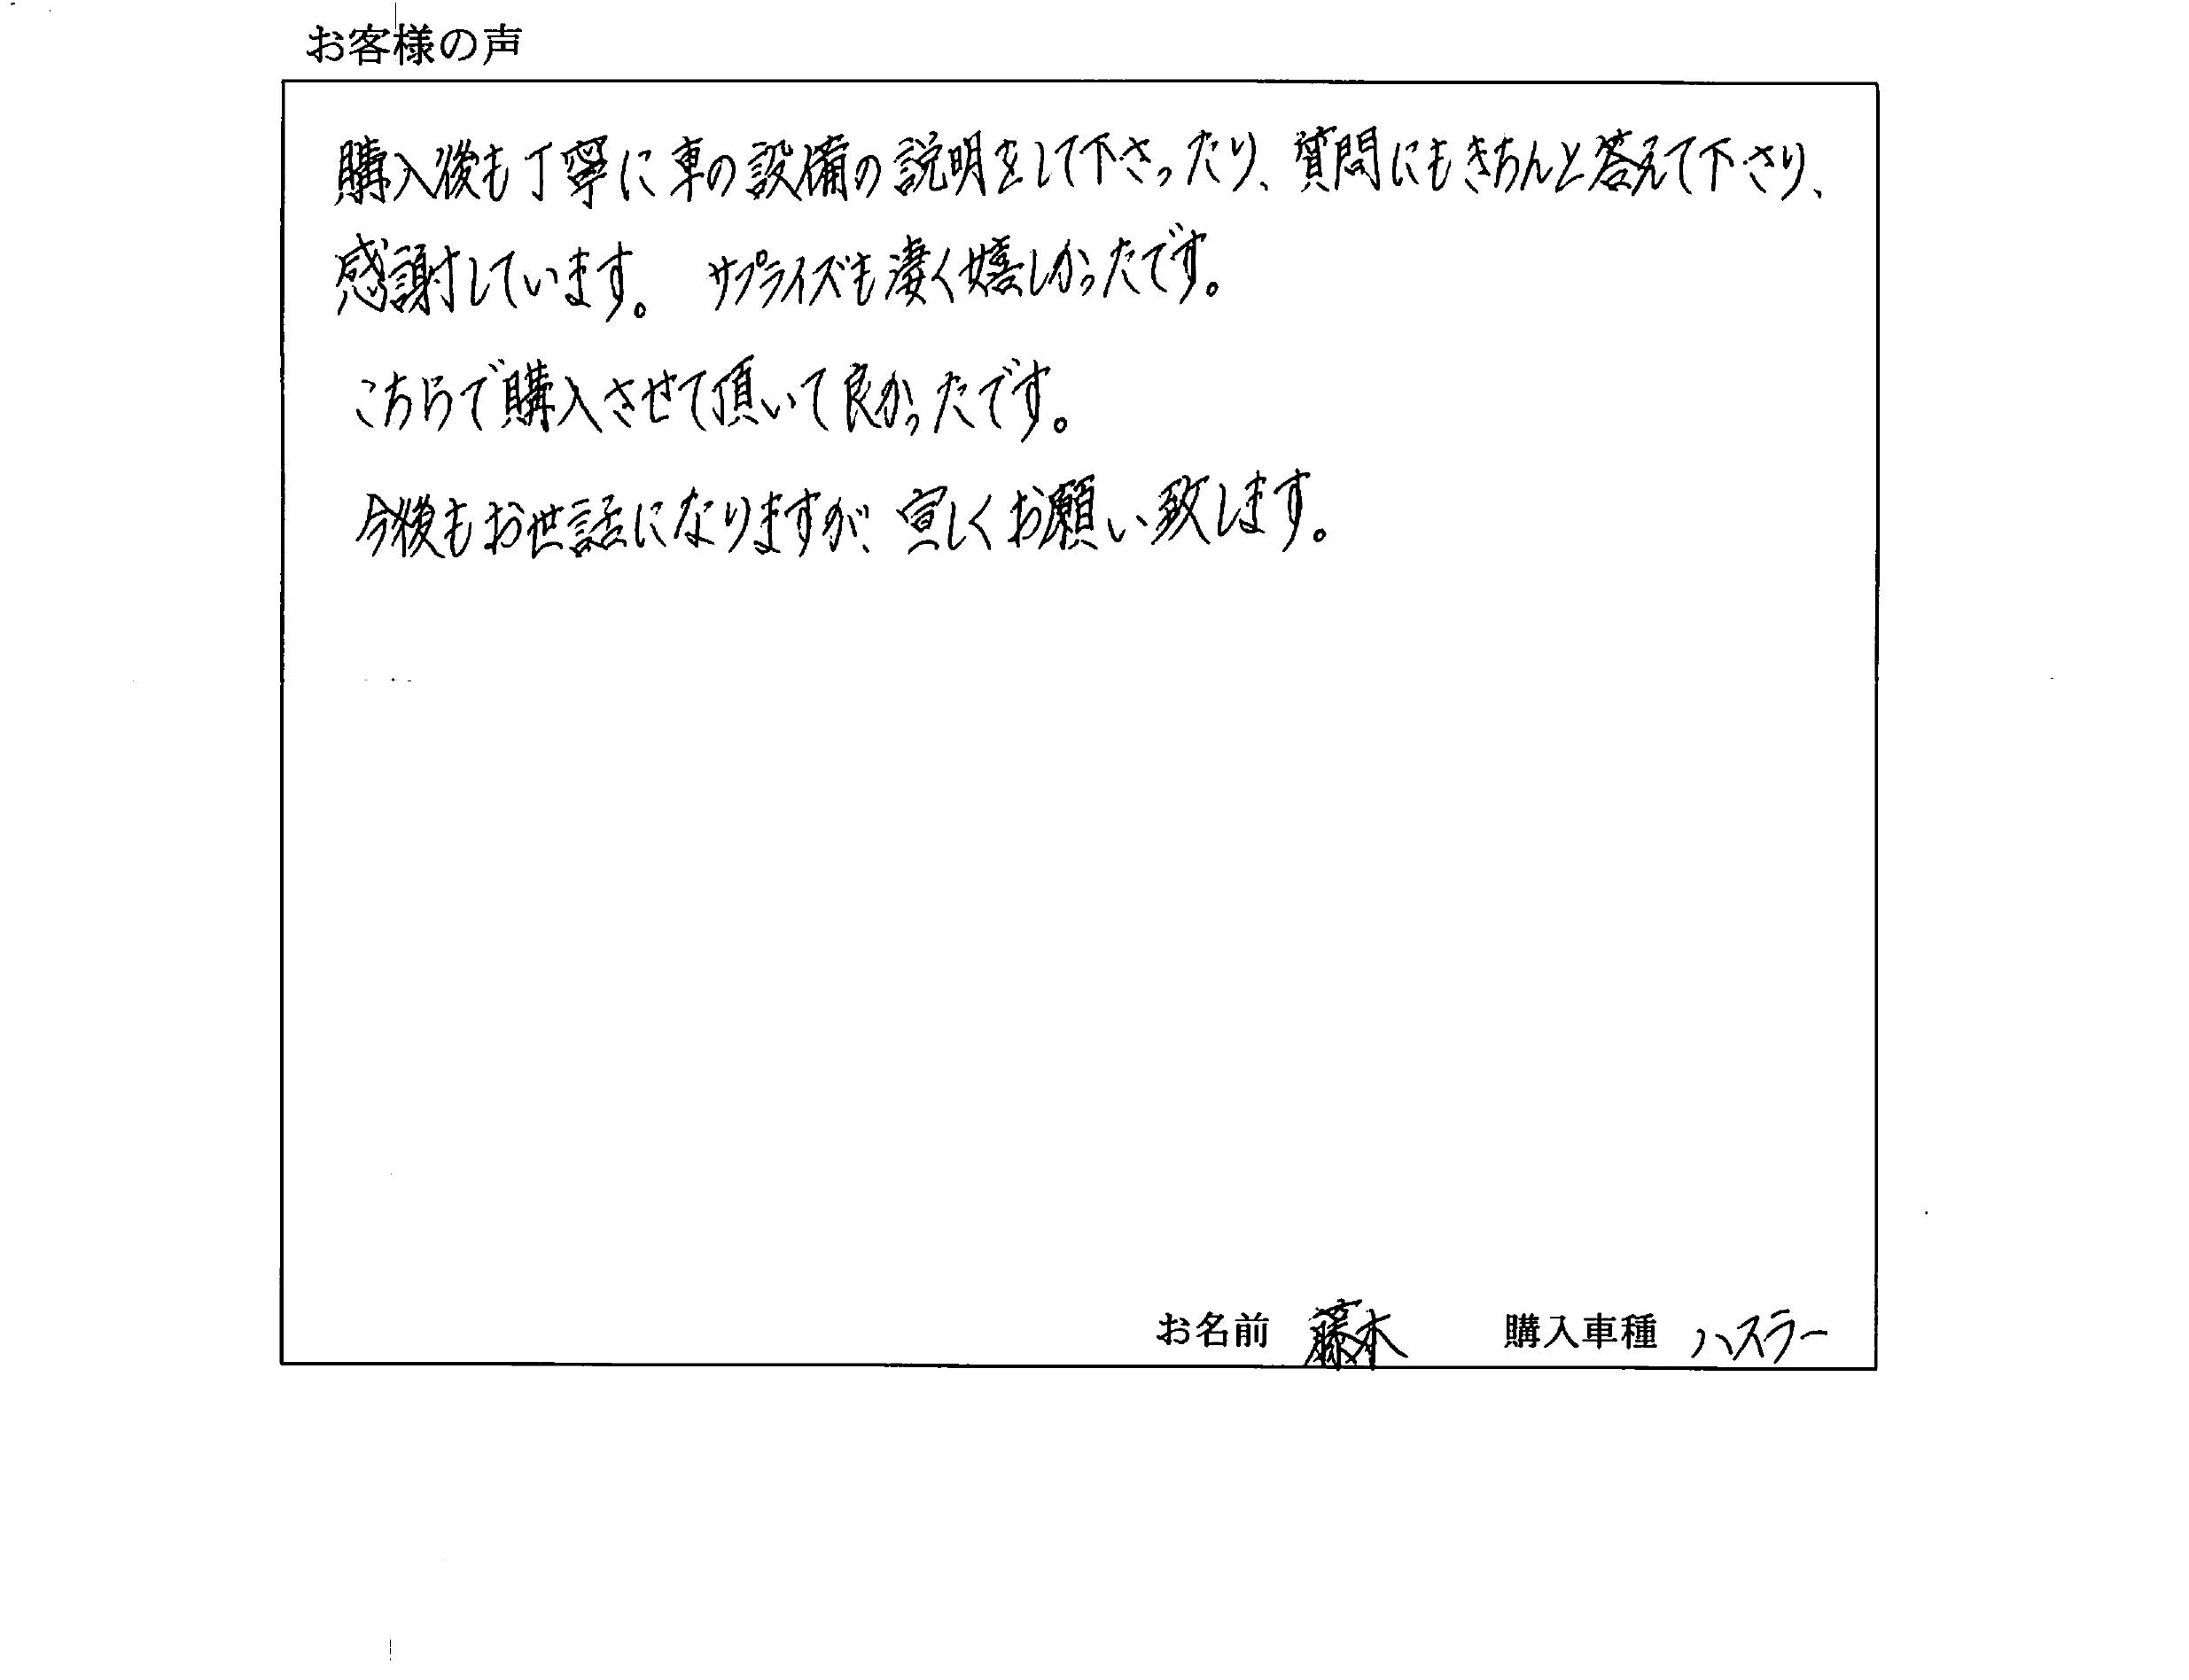 お客様の声
購入後も丁寧に車の設備の説明をして下さったり、質問にもきちんと答えて下さり、
感謝しています。 サプライズも凄く嬉しかったです。
こちらで購入させて頂いて良かったです。
今後もお世話になりますが、宜しくお願い致します。
お名前 藤本 購入車種 ハスラー